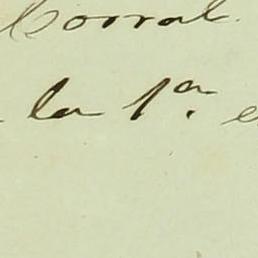 Corral.
la 1ª.